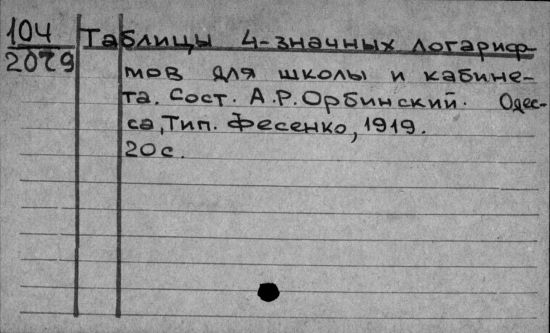 104 Таблицы 4-значных логариф-
2079 мов для школы и кабине-
та. Сост. А.Р.Орбинский. Одес-
са, Тип. Фесенко, 1919.
20с.